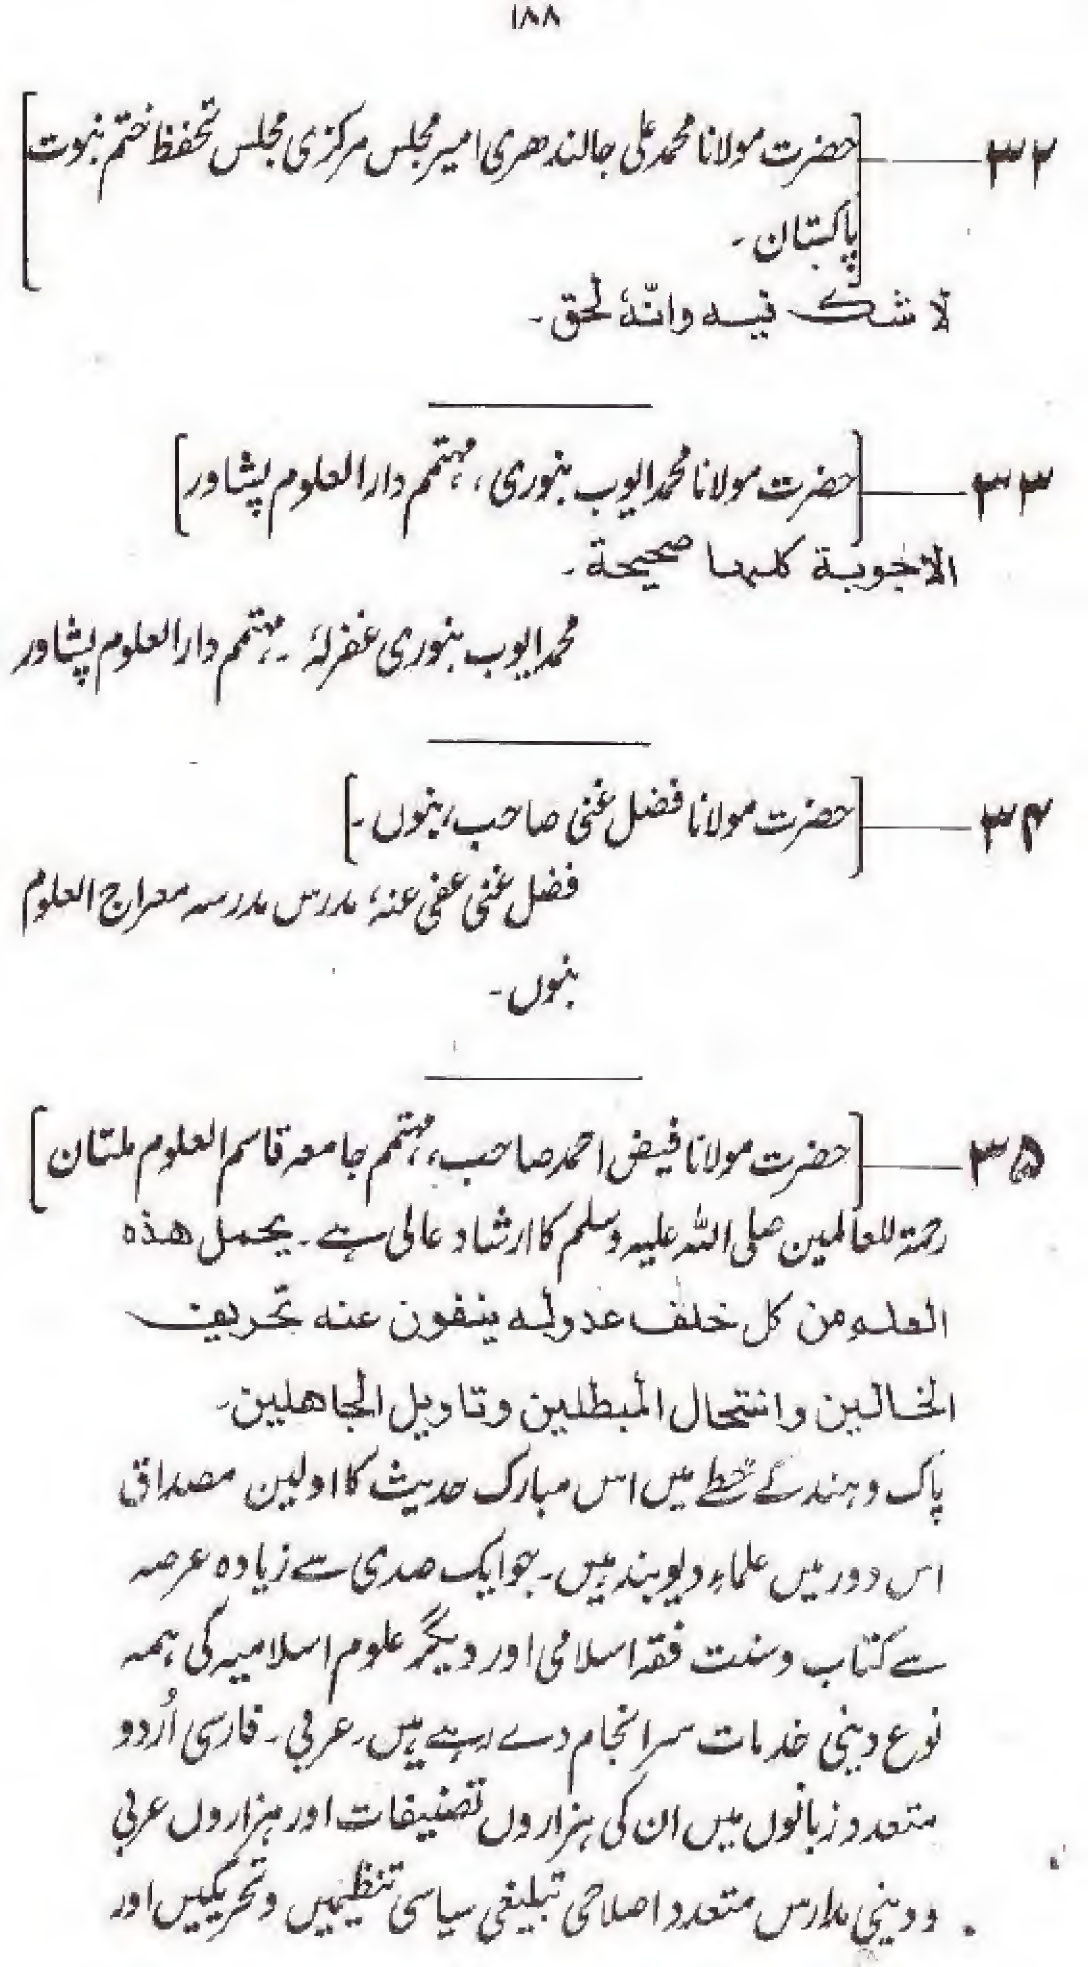 ۱۸۸
۳۲ — [حضرت مولانا محمد علی جالندھری امیر مجلس مرکزی مجلس تحفظ ختم نبوت
پاکستان۔]
لا شك فيه وانّهٗ لحق۔
۳۳ — [حضرت مولانا محمد ایوب بنوری، مہتمم دارالعلوم پشاور]
الاجوبة كلها صحيحة۔
محمد ایوب بنوری غفرلہٗ۔ مہتمم دارالعلوم پشاور
۳۴ — [حضرت مولانا فضل غنی صاحب، بنوں۔]
فضل غنی عفی عنہٗ، مدرس مدرسہ معراج العلوم
بنوں۔
۳۵ — [حضرت مولانا فیض احمد صاحب، مہتمم جامعہ قاسم العلوم ملتان]
رحمۃ للعالمین صلی اللہ علیہ وسلم کا ارشاد عالی ہے۔ يحمل هذه
العلم من كل خلف عدوله ينفون عنه تحريف
الخالين وانتحال المبطلين وتاويل الجاهلين۔
پاک و ہند کے خطے میں اس مبارک حدیث کا اولین مصداق
اس دور میں علماء دیوبند ہیں۔ جو ایک صدی سے زیادہ عرصہ
سے کتاب و سنت فقہ اسلامی اور دیگر علوم اسلامیہ کی ہمہ
نوع دینی خدمات سرانجام دے رہے ہیں۔ عربی۔ فارسی اُردو
متعدد زبانوں میں ان کی ہزاروں تصنیفات اور ہزاروں عربی
و دینی مدارس متعدد اصلاحی تبلیغی سیاسی تنظیمیں و تحریکیں اور